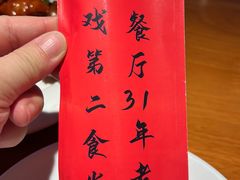 餐厅31年老
戏第二食堂